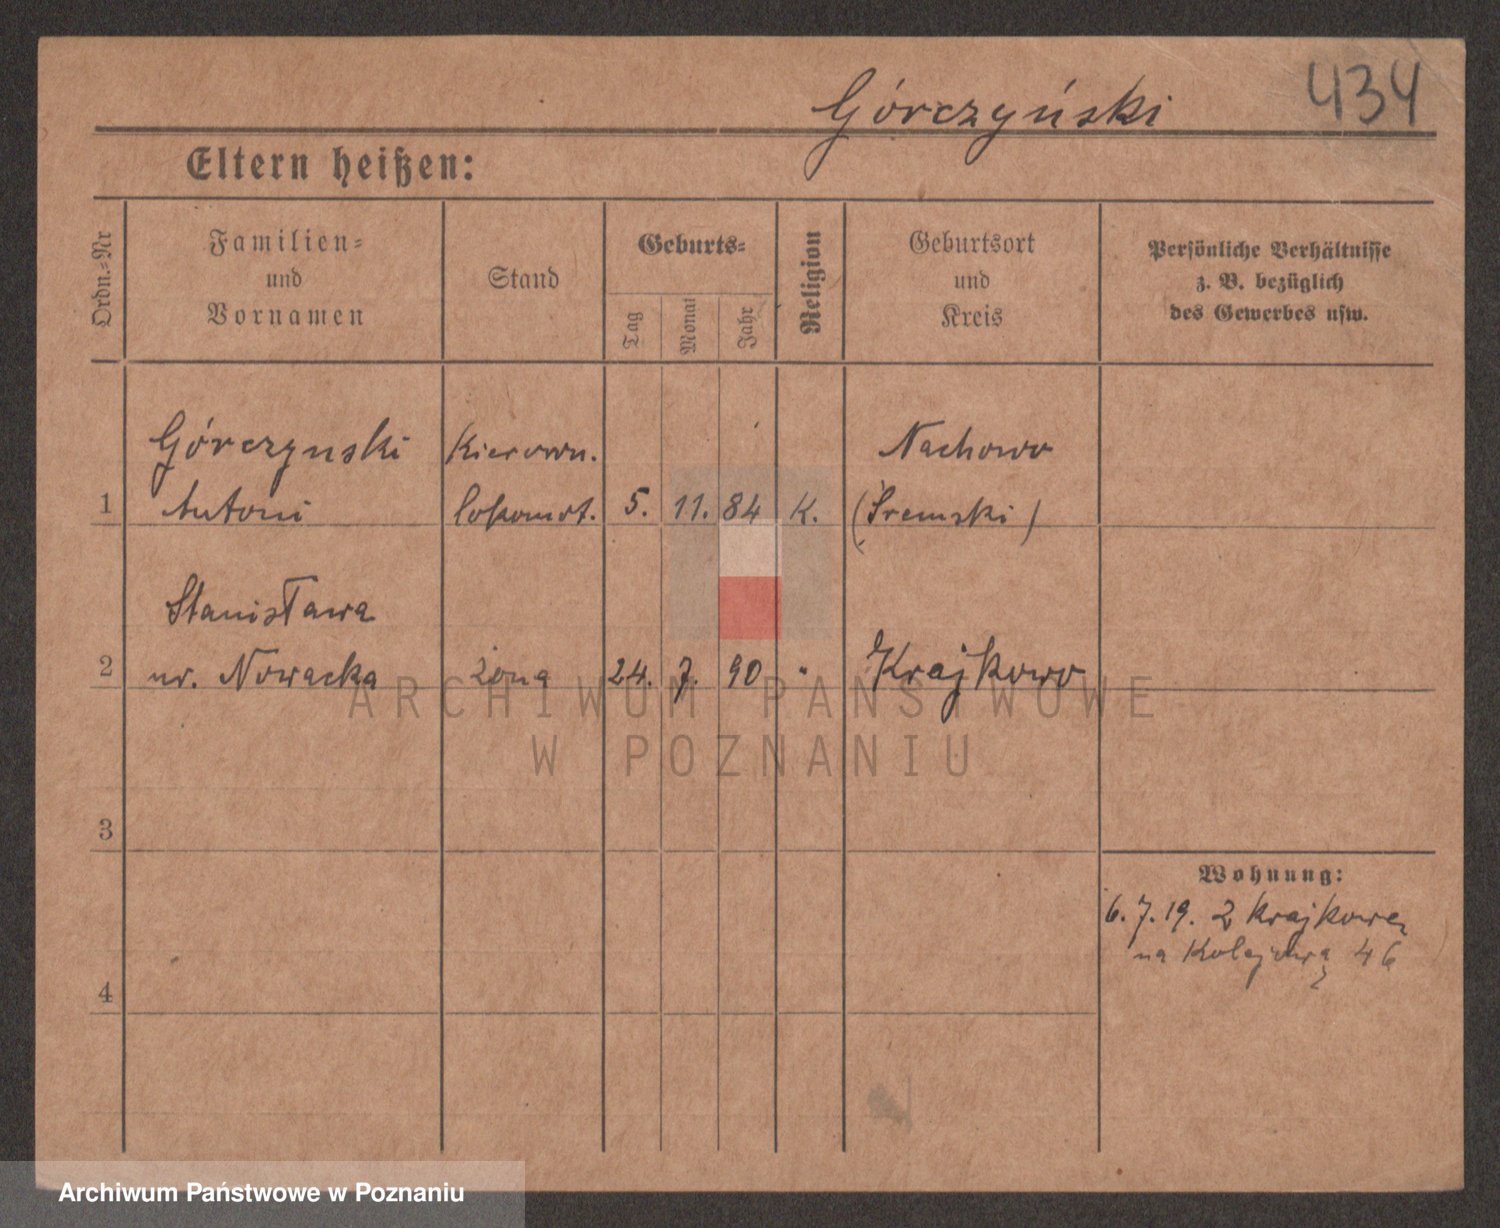 Górczyński 434
Eltern heißen:
Ordn.-Nr
Familien-
und
Vornamen
Stand
Geburts-
Tag
Monat
Jahr
Religion
Geburtsort
und
Kreis
Persönliche Verhältnisse
z. B. bezüglich
des Gewerbes usw.
Górczynski Kierown. Nachowo
1 Antoni lokomot. 5. 11. 84 K. (Śremski)
Stanisława
2 ur. Nowacka żona 24. 7. 90 " Krajkowo
ARCHIWUM PAŃSTWOWE
W POZNANIU
3
Wohnung:
6. 7. 19. z Krajkowa
na Kolejową 46
4
Archiwum Państwowe w Poznaniu